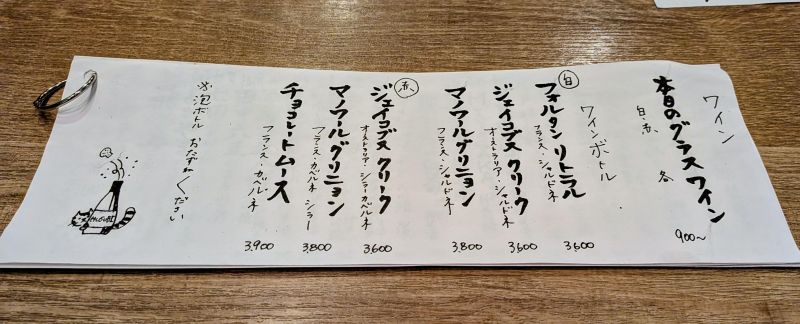 ワイン
本日のグラスワイン
白・赤 各 900〜
ワインボトル
白
フォルタン リトラル
フランス・シャルドネ
3,600
ジェイコブス クリーク
オーストラリア・シャルドネ
3,600
マノワール グリニョン
フランス・シャルドネ
3,800
赤
ジェイコブス クリーク
オーストラリア・シラーカベルネ
3,600
マノワール グリニョン
フランス・カベルネ シラー
3,800
チョコレート ムース
フランス・カベルネ
3,900
※泡ボトル おたずねください